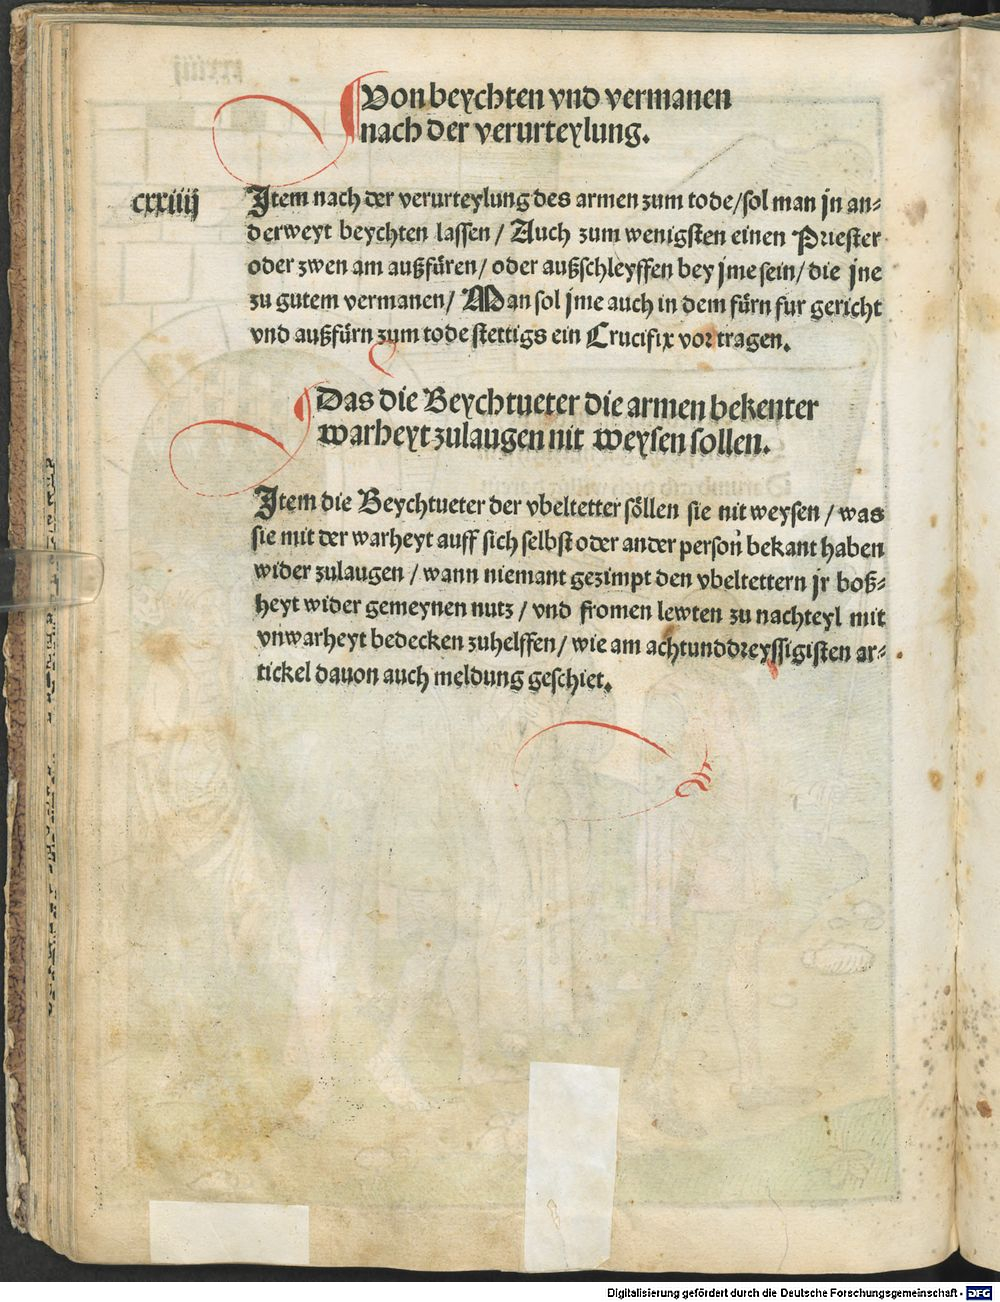 Von beychten vnd vermanen
nach der verurteylung.
cxxiiij
Item nach der verurteylung des armen zum tode/sol man jn an-
derweyt beychten lassen / Auch zum wenigsten einen Priester
oder zwen am außfüren/ oder außschleyffen bey jme sein/ die jne
zu gutem vermanen/ Man sol jme auch in dem fürn fur gericht
vnd außfürn zum tode stettigs ein Crucifix vor tragen.
Das die Beychtueter die armen bekenter
warheyt zulaugen nit weysen sollen.
Item die Beychtueter der vbeltetter söllen sie nit weysen / was
sie mit der warheyt auff sich selbst oder ander person bekant haben
wider zulaugen / wann niemant gezimpt den vbeltettern jr boß-
heyt wider gemeynen nutz / vnd fromen lewten zu nachteyl mit
vnwarheyt bedecken zuhelffen/ wie am achtunddreyssigisten ar-
tickel dauon auch meldung geschiet.
Digitalisierung gefördert durch die Deutsche Forschungsgemeinschaft - DFG